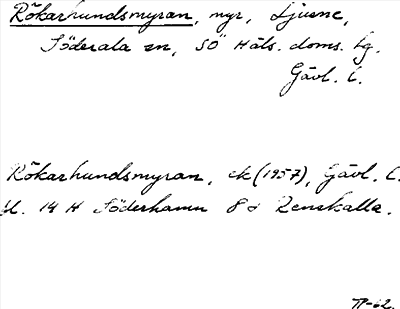 Rökarhundsmyran, myr, Ljusne,
Söderala sn, SÖ Häls. doms. bg.
Gävl. l.
Rökarhundsmyran, ek (1957), Gävl. l.
bl. 14 H Söderhamn 8 d Renskalla.